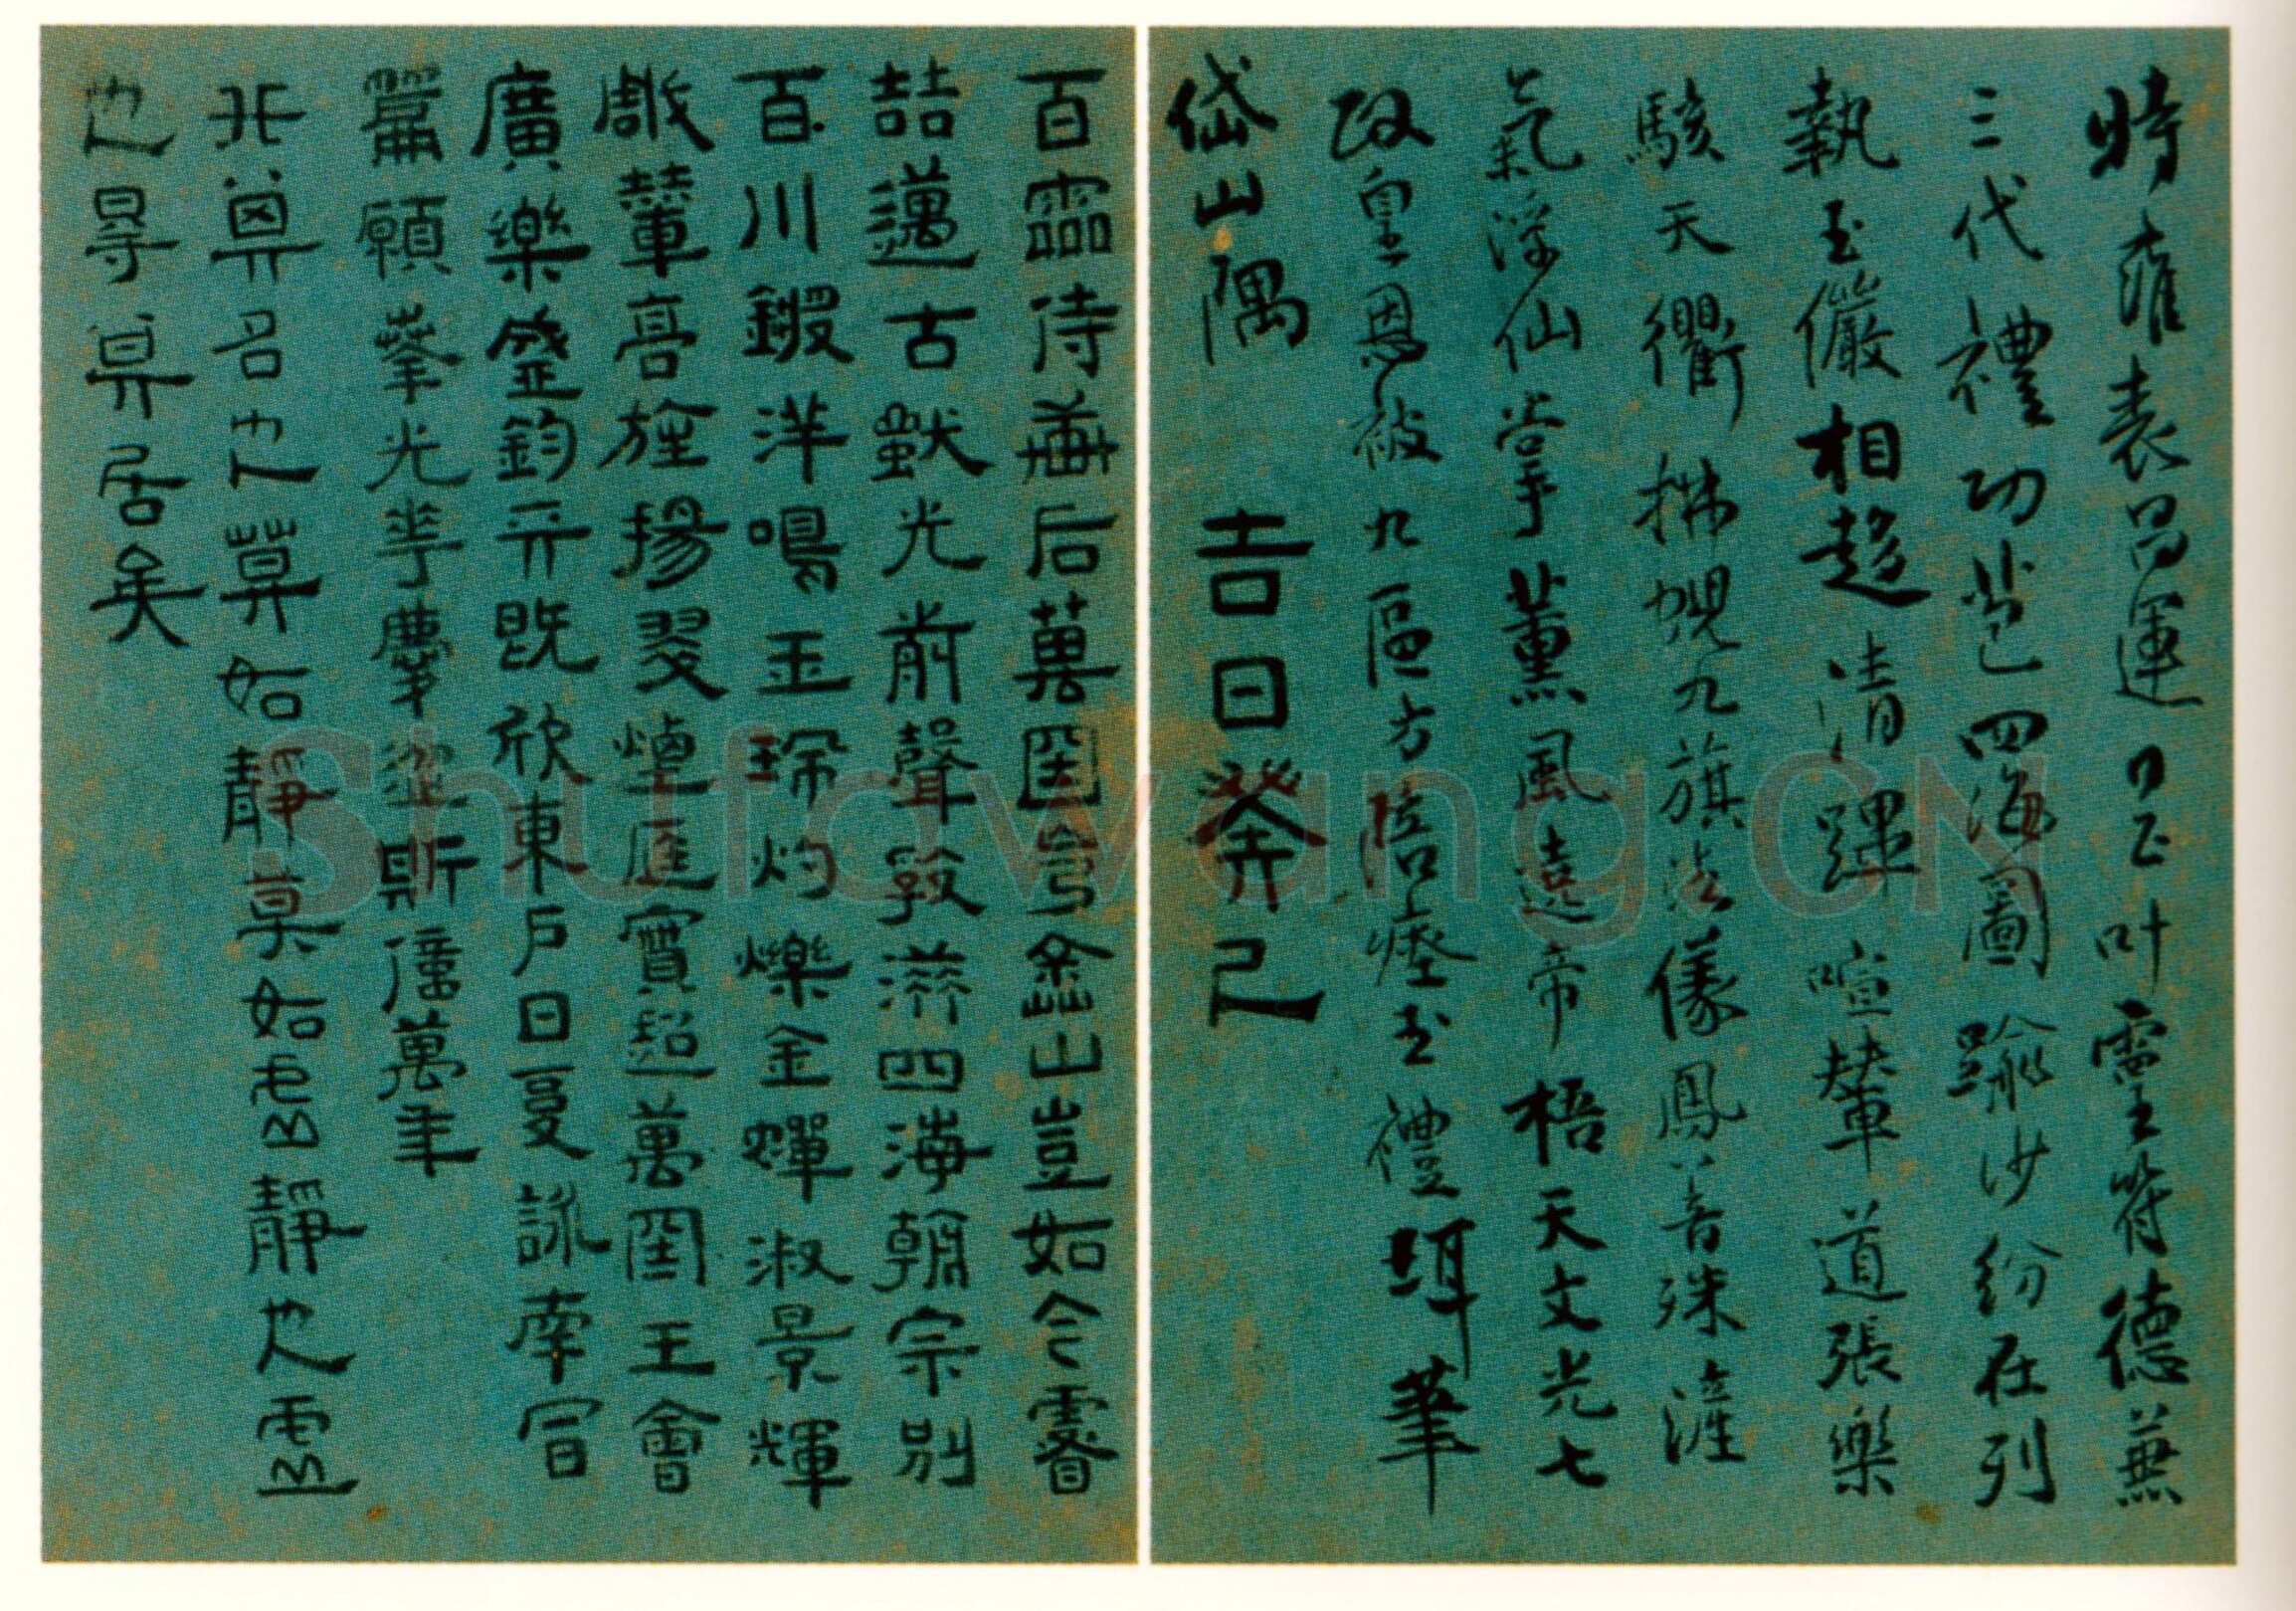 時雍表昌運日正叶靈符德兼
三代禮功苞四海圖踰沙紛在列
執玉儼相趨清蹕喧輦道張樂
駭天衢拂蜺九旗法儀鳳音殊淮
氣浮仙掌薰風遶帝梧天文光七
政皇恩被九區方陪瘞玉禮珥筆
岱山隅 吉日癸己
百靈侍軒后萬國會塗山豈如今睿
喆邁古獸光前聲敎溢四海朝宗別
百川鍜洋鳴玉珮灼爍金蟬淑景輝
雕輦高旌揚翠煙庭實超萬國王會
廣樂盛鈞天既欣東戶日夏詠南宫
篇願奉光華慶從斯億萬年
非其名也莫如靜莫如虛靜也虛
也尋其居矣
Shufawang.CN